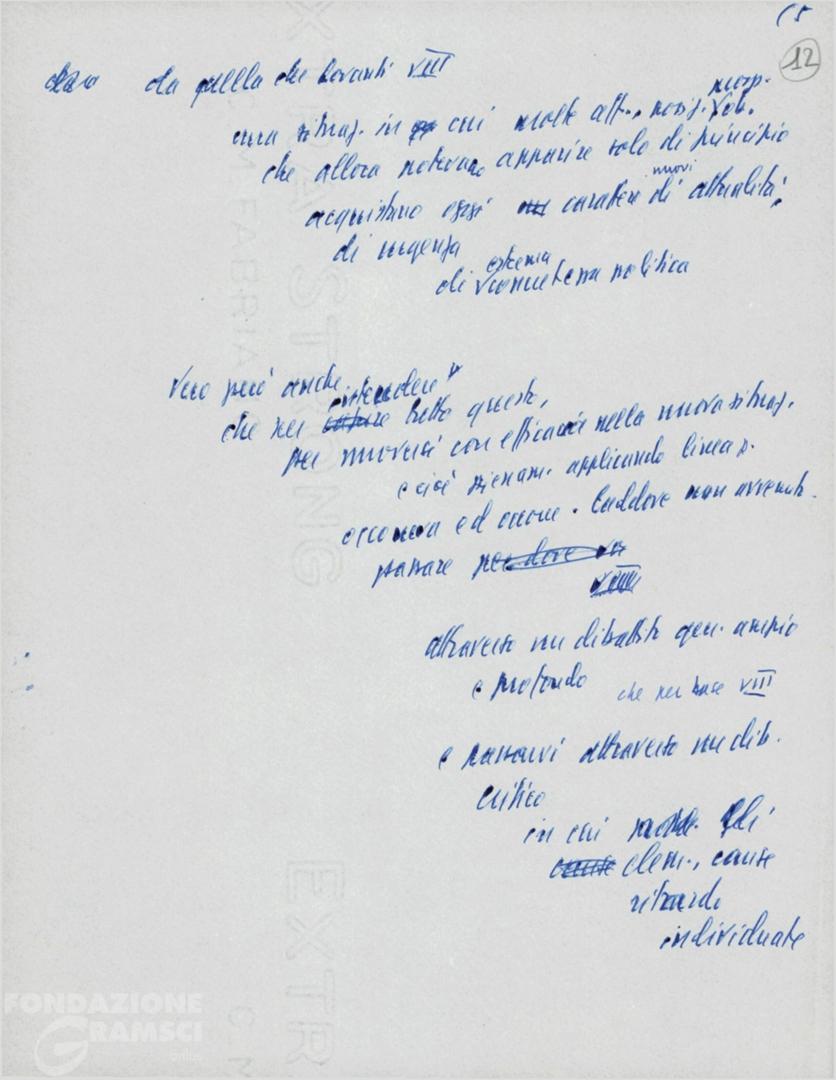 15
12
da quella che davanti VIII
una situaz. in cui molte aff., posiz.
che allora potevano apparire solo di principio
nuovi
acquistano oggi caratteri di attualità,
di urgenza
estrema
di concretezza politica
Vero però anche
intendere
che per capire tutto questo,
per muoversi con efficacia nella nuova situaz.
e cioè pienam. applicando linea p.
occorreva ed occorre. Laddove non avvenuto.
passare
VIII
attraverso un dibattito gen. ampio
e profondo che per base VIII
e passarvi attraverso un dib.
critico
in cui gli
cause elem., cause
ritardo
individuate
FONDAZIONE
GRAMSCI
onlus
EXTRA STRONG
EXTR